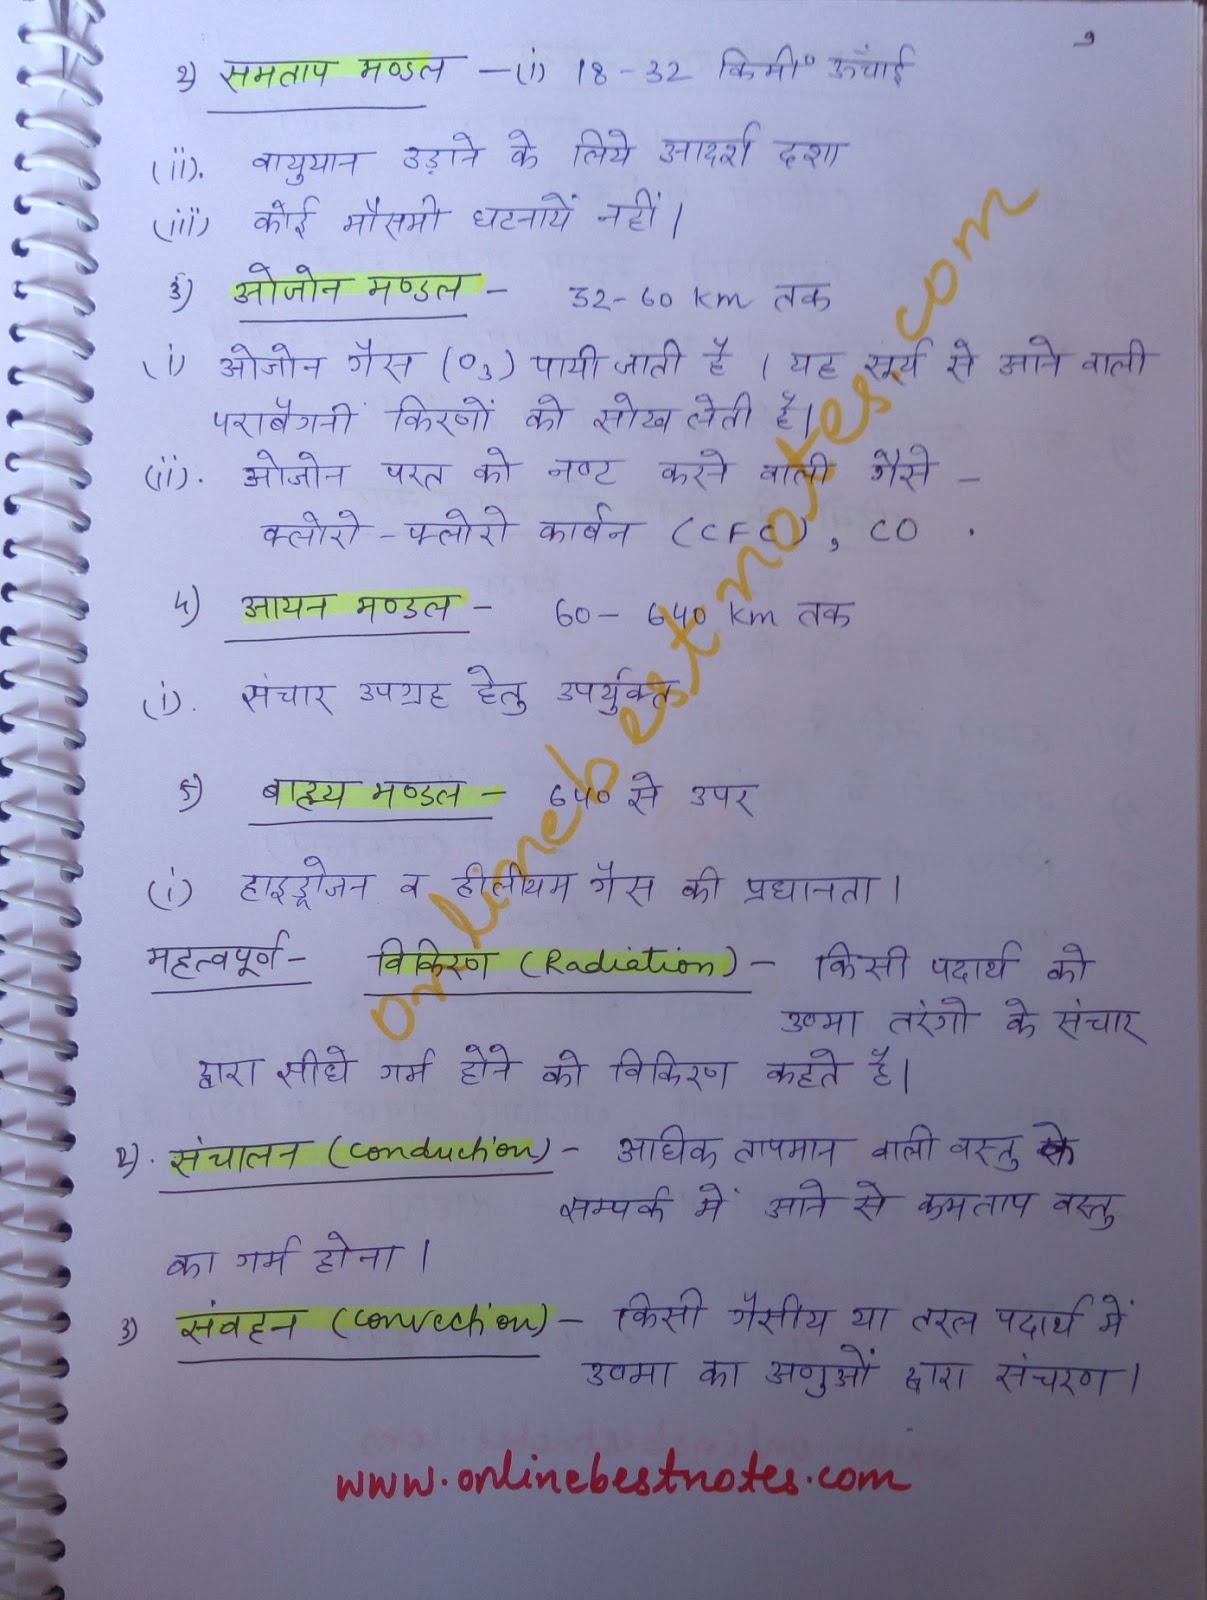 9
2) समताप मण्डल - (i) 18-32 किमी० ऊँचाई
(ii). वायुयान उड़ाने के लिये आदर्श दशा
(iii) कोई मौसमी घटनायें नहीं।
3) ओजोन मण्डल - 32-60 km तक
(i) ओजोन गैस (O3) पायी जाती है। यह सूर्य से आने वाली
पराबैगनी किरणों को सोख लेती है।
(ii). ओजोन परत को नष्ट करने वाली गैसे -
क्लोरो-फ्लोरो कार्बन (CFC), CO .
4) आयन मण्डल - 60-640 km तक
(i). संचार उपग्रह हेतु उपर्युक्त
5) बाह्य मण्डल - 640 से उपर
(i) हाइड्रोजन व हीलीयम गैस की प्रधानता।
महत्वपूर्ण- विकिरण (Radiation) - किसी पदार्थ को
उष्मा तरंगो के संचार
द्वारा सीधे गर्म होने को विकिरण कहते है।
2). संचालन (conduction) - अधिक तापमान वाली वस्तु के
सम्पर्क में आने से कमताप वस्तु
का गर्म होना।
3) संवहन (convection) - किसी गैसीय या तरल पदार्थ में
उष्मा का अणुओं द्वारा संचरण।
onlinebestnotes.com
www.onlinebestnotes.com